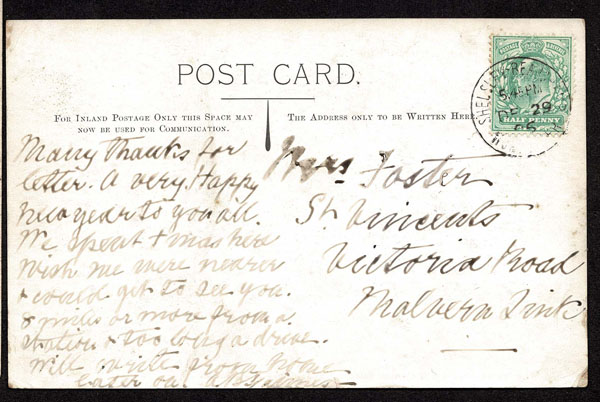 POST CARD.
FOR INLAND POSTAGE ONLY THIS SPACE MAY
NOW BE USED FOR COMMUNICATION.
THE ADDRESS ONLY TO BE WRITTEN HERE.
Many thanks for
letter. A very Happy
New year to you all.
We spent Xmas here
Wish we were nearer
& could get to see you.
8 miles or more from a
station & too long a drive.
Will write from home
later on.
Mrs Foster
St Vincents
Victoria Road
Malvern Link
POSTAGE REVENUE
HALF PENNY
SHELSLEY
5.45 PM
DE 29
05